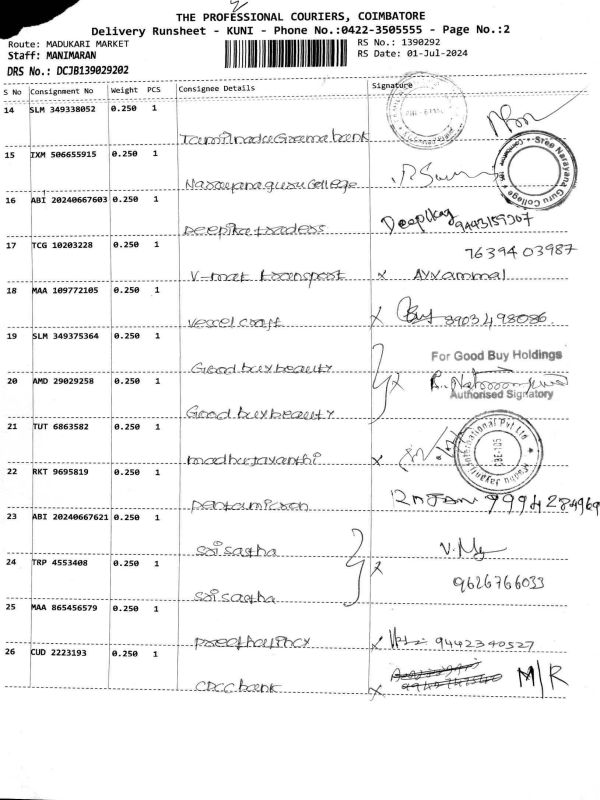 THE PROFESSIONAL COURIERS, COIMBATORE
Delivery Runsheet - KUNI - Phone No.:0422-3505555 - Page No.:2
Route: MADUKARI MARKET
RS No.: 1390292
Staff: MANIMARAN
RS Date: 01-Jul-2024
DRS No.: DCJB139029202
S No Consignment No Weight PCS Consignee Details Signature
14 SLM 349338052 0.250 1
Tamilnadu Grama bank
15 IXM 506655915 0.250 1
Narayanaguru College
Sree Narayana Guru College
16 ABI 20240667603 0.250 1
Deepika traders
17 TCG 10203228 0.250 1
7639403987
V-mat transport x Ayyammal
18 MAA 109772105 0.250 1
vessel craft x 8903498086
19 SLM 349375364 0.250 1
Good buy beauty
For Good Buy Holdings
20 AMD 29029258 0.250 1
Authorised Signatory
Good buy beauty
21 TUT 6863582 0.250 1
madhu jayanthi x
Madhu Jayanti International Pvt Ltd
22 RKT 9695819 0.250 1
pentamicron
23 ABI 20240667621 0.250 1
sri sastha
24 TRP 4553408 0.250 1 x
9626766033
sri sastha
25 MAA 865456579 0.250 1
x 9442340527
26 CUD 2223193 0.250 1
M/R
CDCC bank x